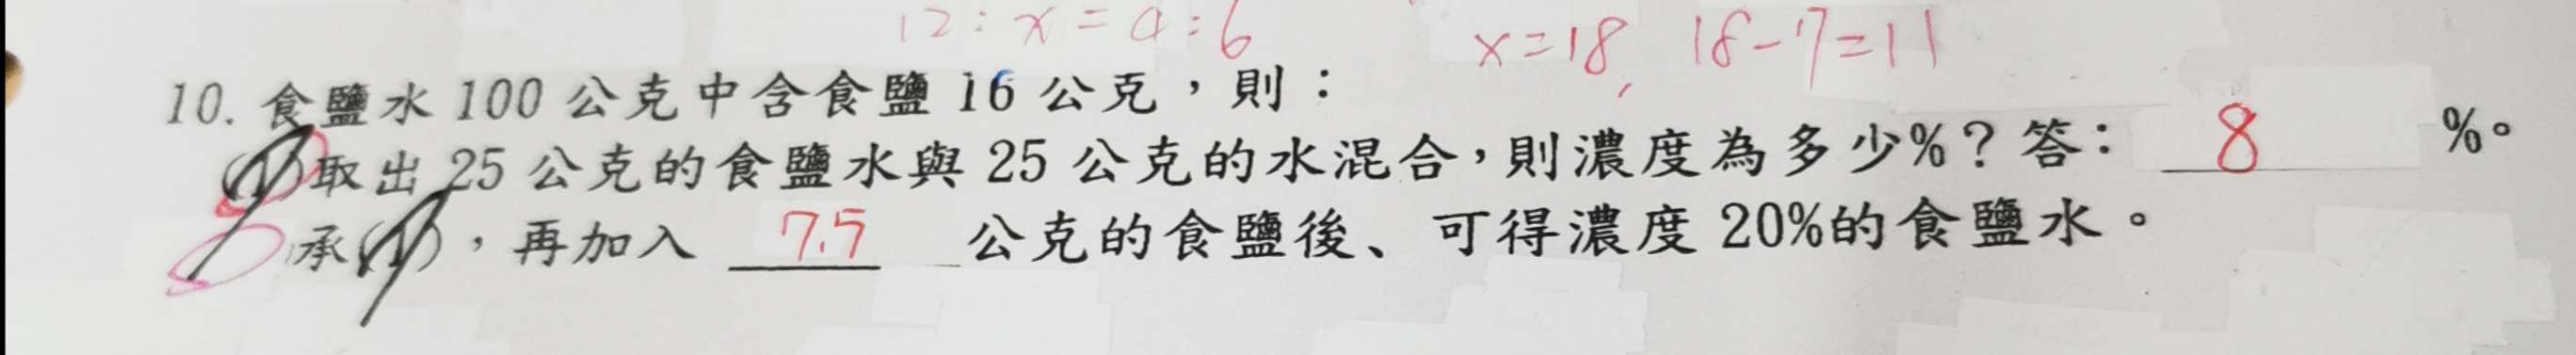 12:x=4:6
x=18, 18-7=11
10. 食鹽水 100 公克中含食鹽 16 公克，則：
(1)取出 25 公克的食鹽水與 25 公克的水混合，則濃度為多少%？答： 8 %。
承(1)，再加入 7.5 公克的食鹽後、可得濃度 20%的食鹽水。